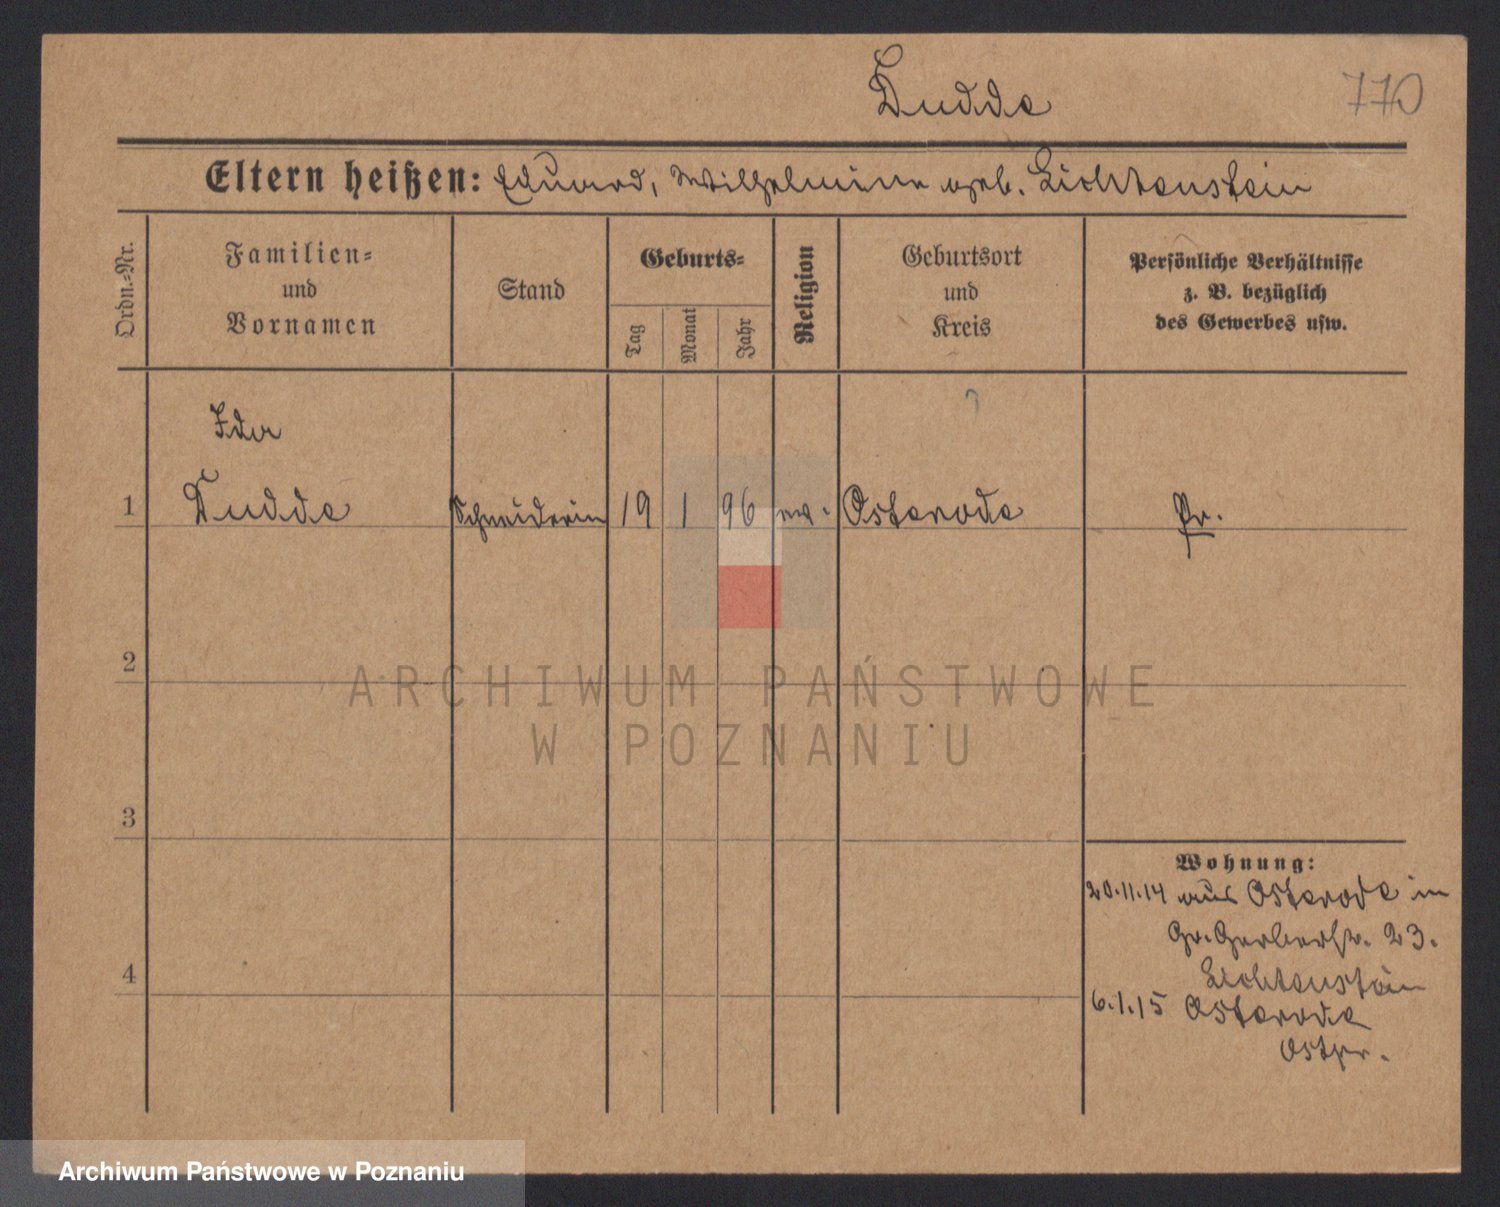 Dudda
770
Eltern heißen: Eduard, Wilhelmine geb. Lichtenstein
Ordn.-Nr.
Familien-
und
Vornamen
Stand
Geburts-
Tag
Monat
Jahr
Religion
Geburtsort
und
Kreis
Persönliche Verhältnisse
z. B. bezüglich
des Gewerbes usw.
Ida
1 Dudda Schneiderin 19 1 96 ev. Osterode Pr.
2
3
4
Wohnung:
20.11.14 aus Osterode in
Gr. Gerberstr. 23.
Lichtenstein
6.1.15 Osterode
Ostpr.
ARCHIWUM PAŃSTWOWE
W POZNANIU
Archiwum Państwowe w Poznaniu